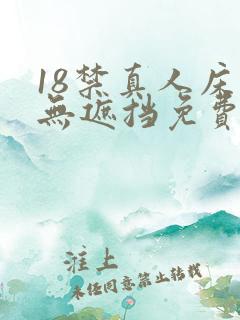 18禁真人床
無遮挡免費
淮上
未经同意禁止转载